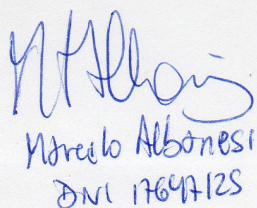 Marcelo Albanesi
DNI 17647125